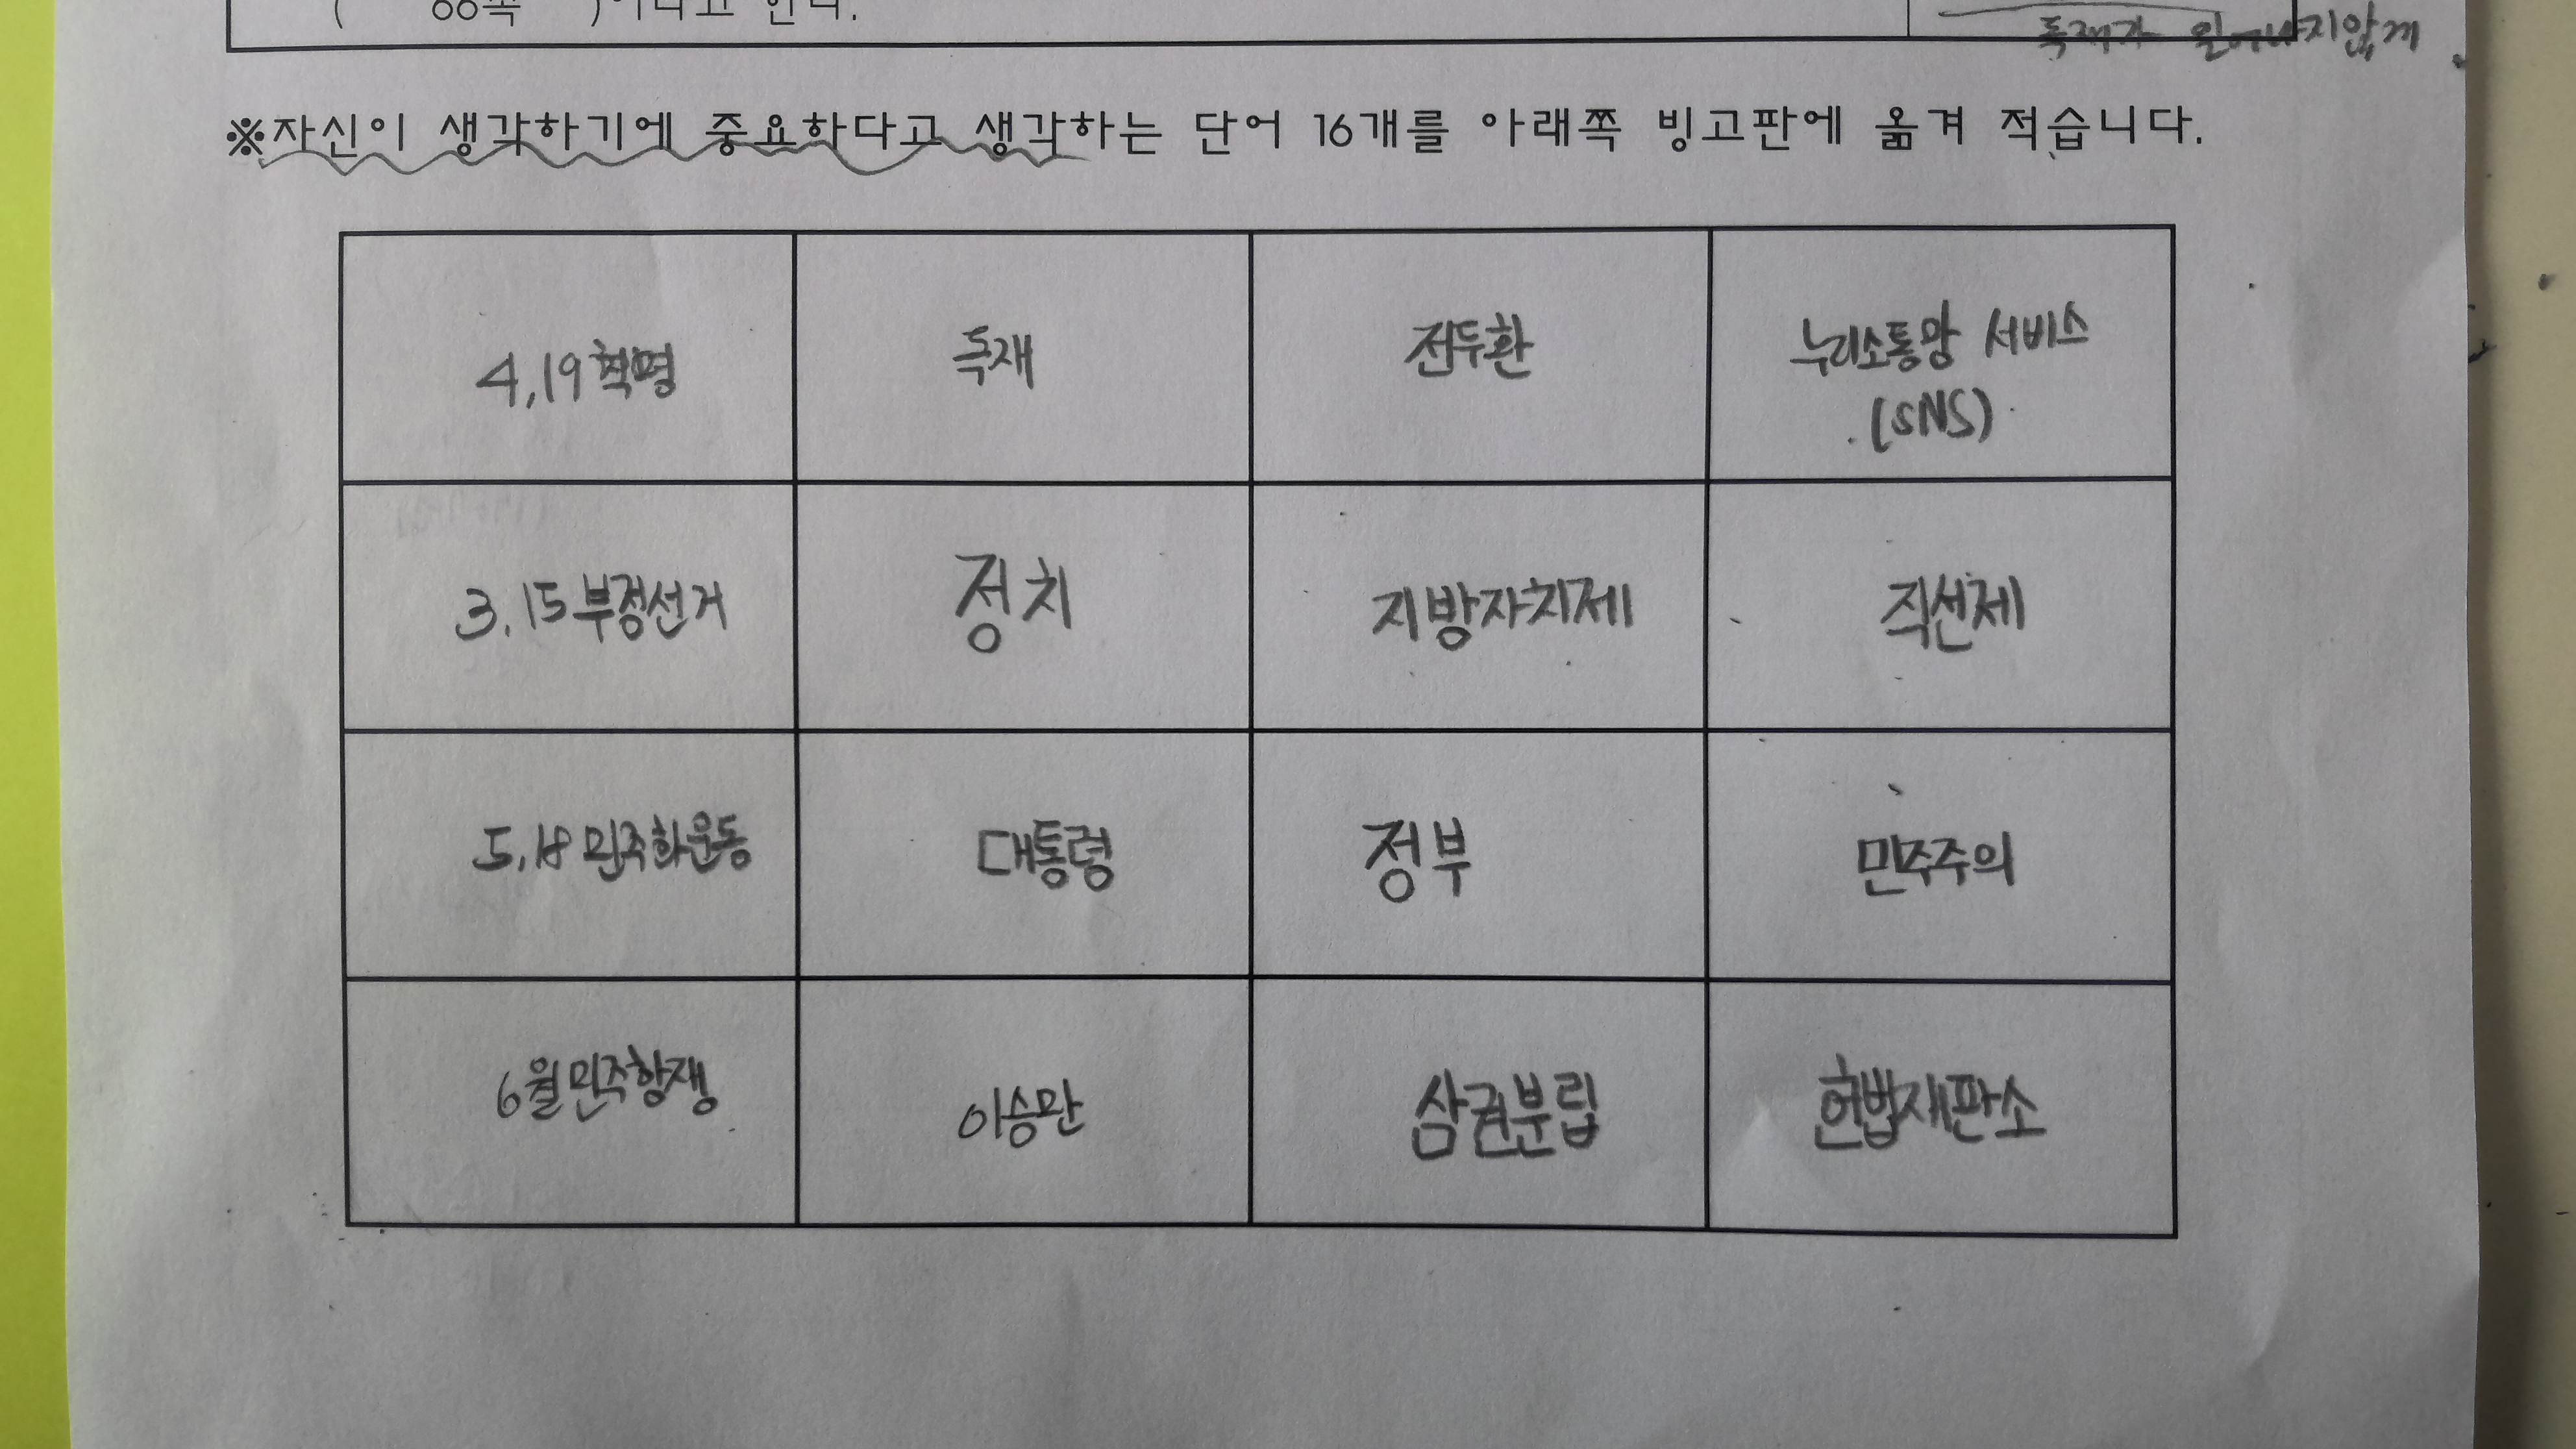 ( 00쪽 )이라고 한다.
독재가 일어나지않게
※자신이 생각하기에 중요하다고 생각하는 단어 16개를 아래쪽 빙고판에 옮겨 적습니다.
4,19혁명 독재 전두환 누리소통망 서비스
(SNS)
3.15부정선거 정치 지방자치제 직선제
5.18 민주화운동 대통령 정부 민주주의
6월민주항쟁 이승만 삼권분립 헌법재판소